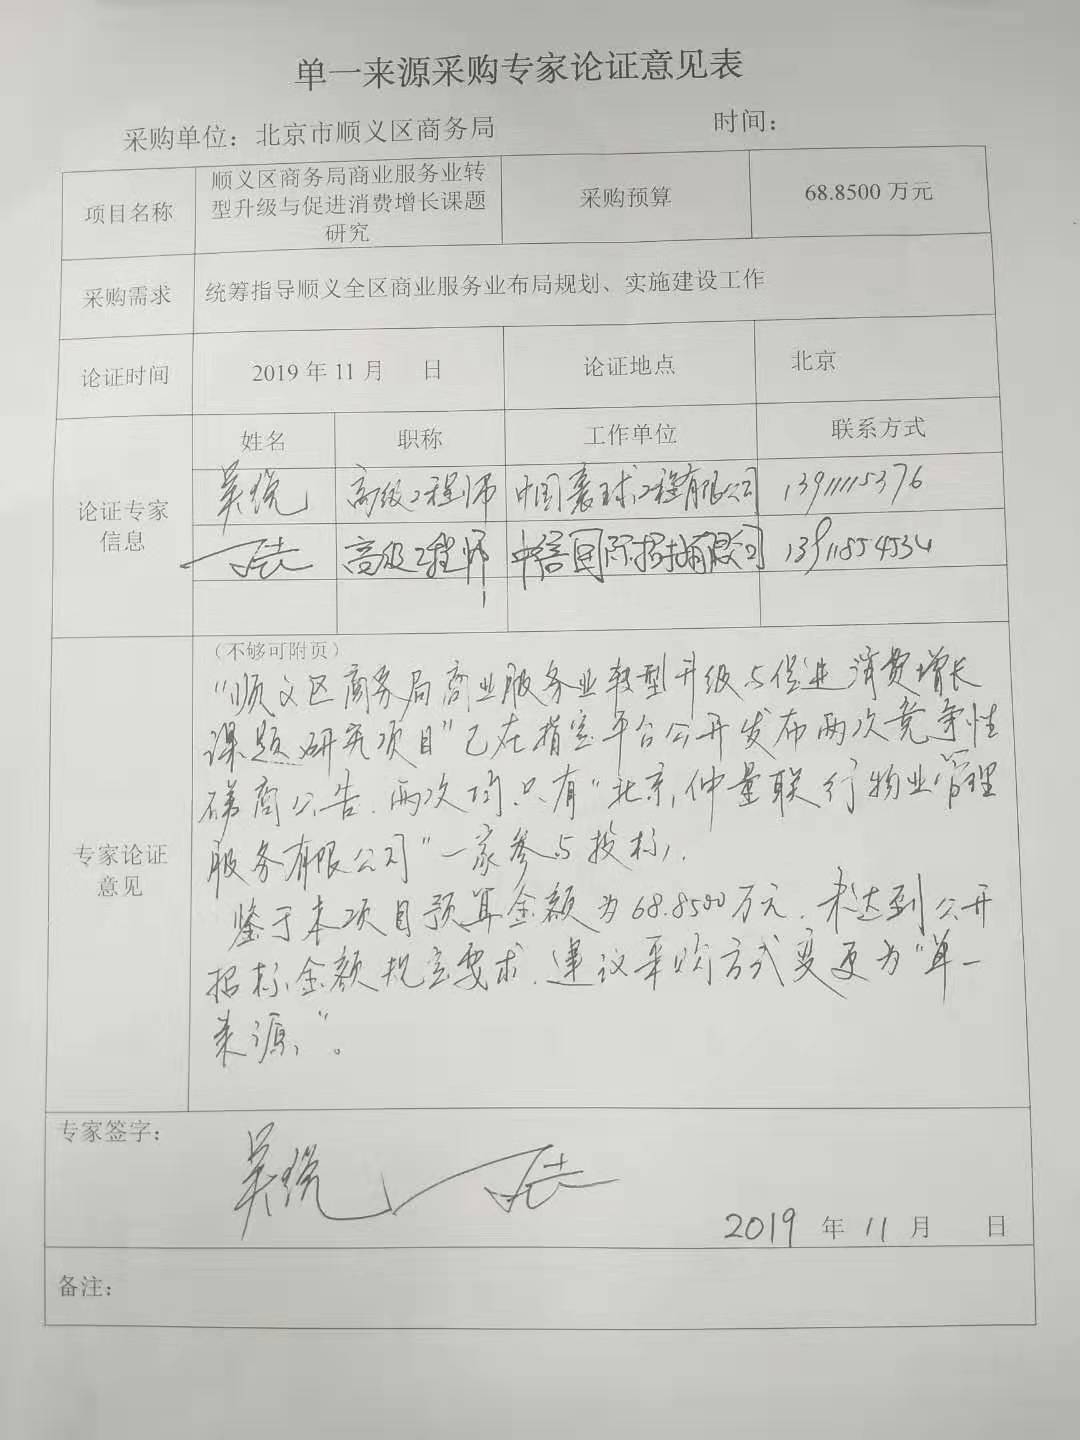 单一来源采购专家论证意见表
采购单位：北京市顺义区商务局 时间：
项目名称 顺义区商务局商业服务业转型升级与促进消费增长课题研究 采购预算 68.8500 万元
采购需求 统筹指导顺义全区商业服务业布局规划、实施建设工作
论证时间 2019 年 11 月 日 论证地点 北京
论证专家信息 姓名 职称 工作单位 联系方式
吴锐 高级工程师 中国寰球工程有限公司 13911115376
高级工程师 中信国际招标有限公司 13911854534
专家论证意见
（不够可附页）
“顺义区商务局商业服务业转型升级与促进消费增长
课题研究项目”已在指定平台公开发布两次竞争性
磋商公告．两次均只有“北京仲量联行物业管理
服务有限公司”一家参与投标，．
鉴于本项目预算金额为68.8500万元．未达到公开
招标金额规定要求．建议采购方式变更为“单一
来源”。
专家签字：
吴锐
2019 年 11 月 日
备注：